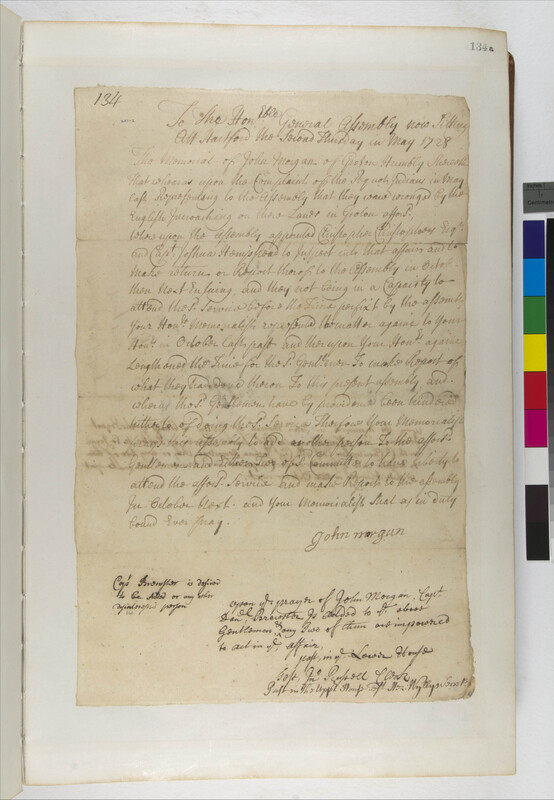 134a
134
To the Hon.ble General Assembly now Sitting
Att Hartford the Second Thursday in May 1728
The Memorial of John Morgan of Groton Humbly Sheweth
that whereas upon the Complaint of the Pequot Indians in May
last Representing to the Assembly that they ware wronged by the
English Incroaching on there Lands in Groton affors.d
Whereupon the Assembly appointed Christopher Christophers Esq.r
and Cap.t Joshua Hempstead to Inspect into that affair and to
make returne or Report thereof to the Assembly in Octo.r
then Next Ensuing, and they not being in a Capacity to
attend the S.d Service before the time perfixt by the assembly
Your Hon.rs Memorialist represented the matter againe to Your
Hon.rs in October Last past and thereupon Your Hon.rs againe
Lengthened the Time for the S.d Gentlemen To make Report of
what they had done thereon To this present assembly and
whereas the S.d Gentlemen have by providence been hindered
hitherto of doing the S.d Service Therefore Your Memorialist
prays to add another person To the affors.d
Gentlemen and committee to have Liberty to
attend the affors.d Service and make Report to the assembly
In October Next. and Your Memorialist Shal as in duty
bound Ever pray.
John morgan
Cap.t Brewster is desired
to be Aded or any other
person
upon y.e prayer of John Morgan, Cap.t
Dan.l Brewster Is added to y.e above
Gentlemen & any Two of them are impowred
to act in y.e affair,
past in y.e Lower House
Test Jn.o Russell Clerk
Past in the upper House Test Hez Wyllys Secret.y